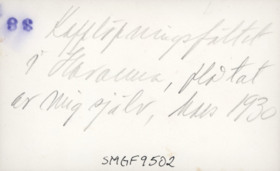 88
Kapplöpningsfältet
i Havanna, plåtat
av mig själv, Mars 1930
SMGF9502